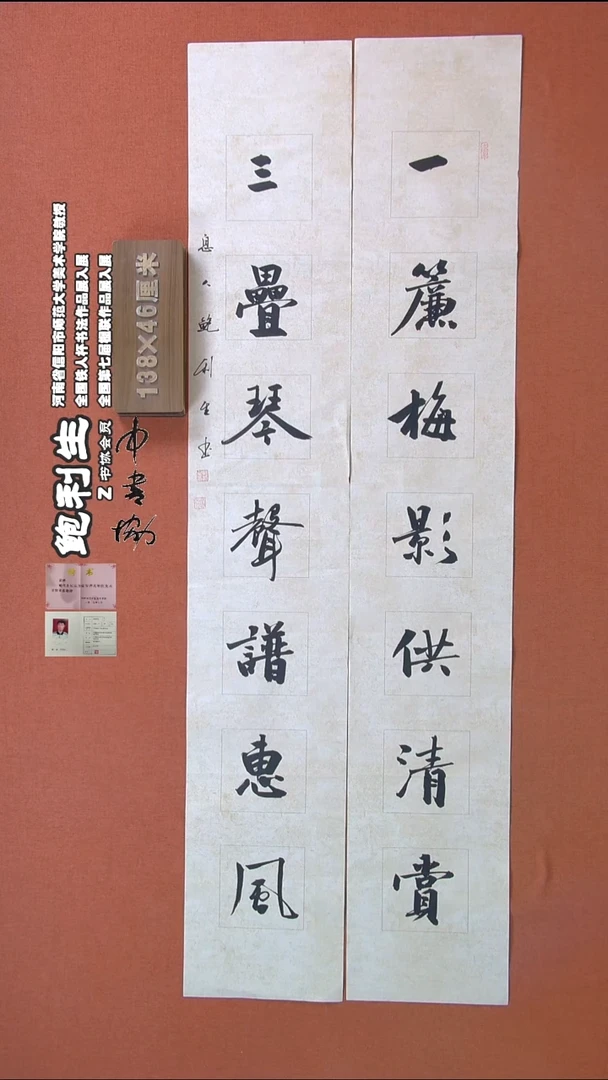 一簾梅影供清賞
三疊琴聲譜惠風
息人鲍利生书
138×46厘米
河南省信阳市师范大学美术学院教授
全国铁人杯书法作品展入展
全国第七届楹联作品展入展
鲍利生
Z 书协会员
中书协